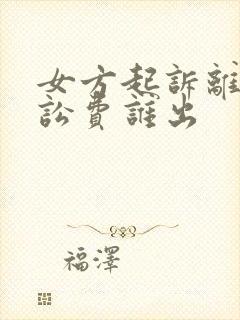 女方起訴離
訟費誰出
福澤